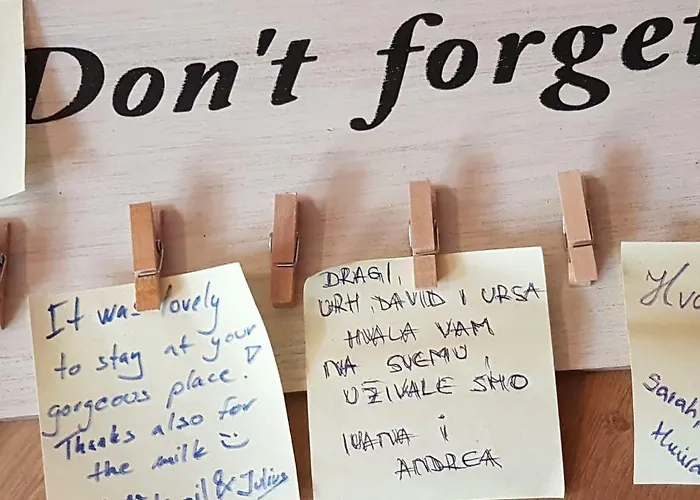 Don't forget
It was lovely
to stay at your
gorgeous place!
Thanks also for
the milk :)
& Julius
DRAGI,
URH, DAVID I URŠA
HVALA VAM
NA SVEMU,
UŽIVALE SMO
IVANA i
ANDREA
Hva
Sarah,